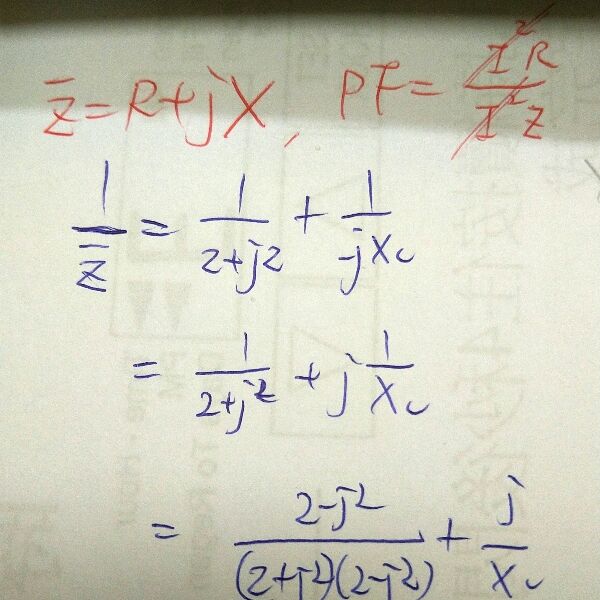 Z̄ = R+jX, PF = I²R / I²Z
1/Z̄ = 1/(2+j2) + 1/(-jXc)
= 1/(2+j2) + j 1/Xc
= (2-j2)/((2+j2)(2-j2)) + j/Xc